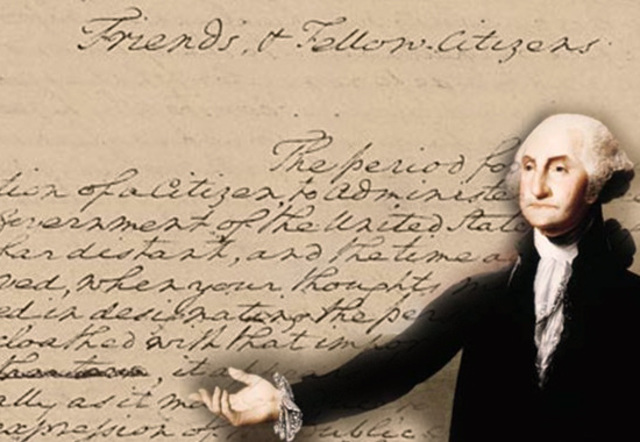 Friends, & Fellow-Citizens
The period fo
tion of a Citizen, to administe
Government of the United State
far distant, and the time a
ved, when your thoughts
ed in designating the per
cloathed with that impor
, it a
ally as it ma
expression of public